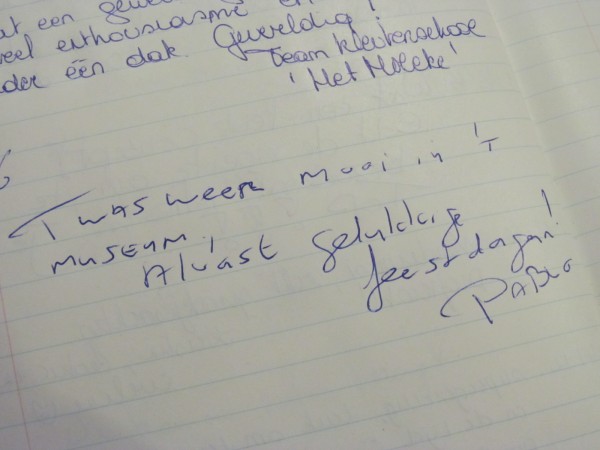 at een
veel enthousiasme en
der één dak. Geweldig!
Team kleuterschool
'Het Moleke'
T was weer mooi in 't
museum!
Alvast gelukkige
feestdagen!
Pablo